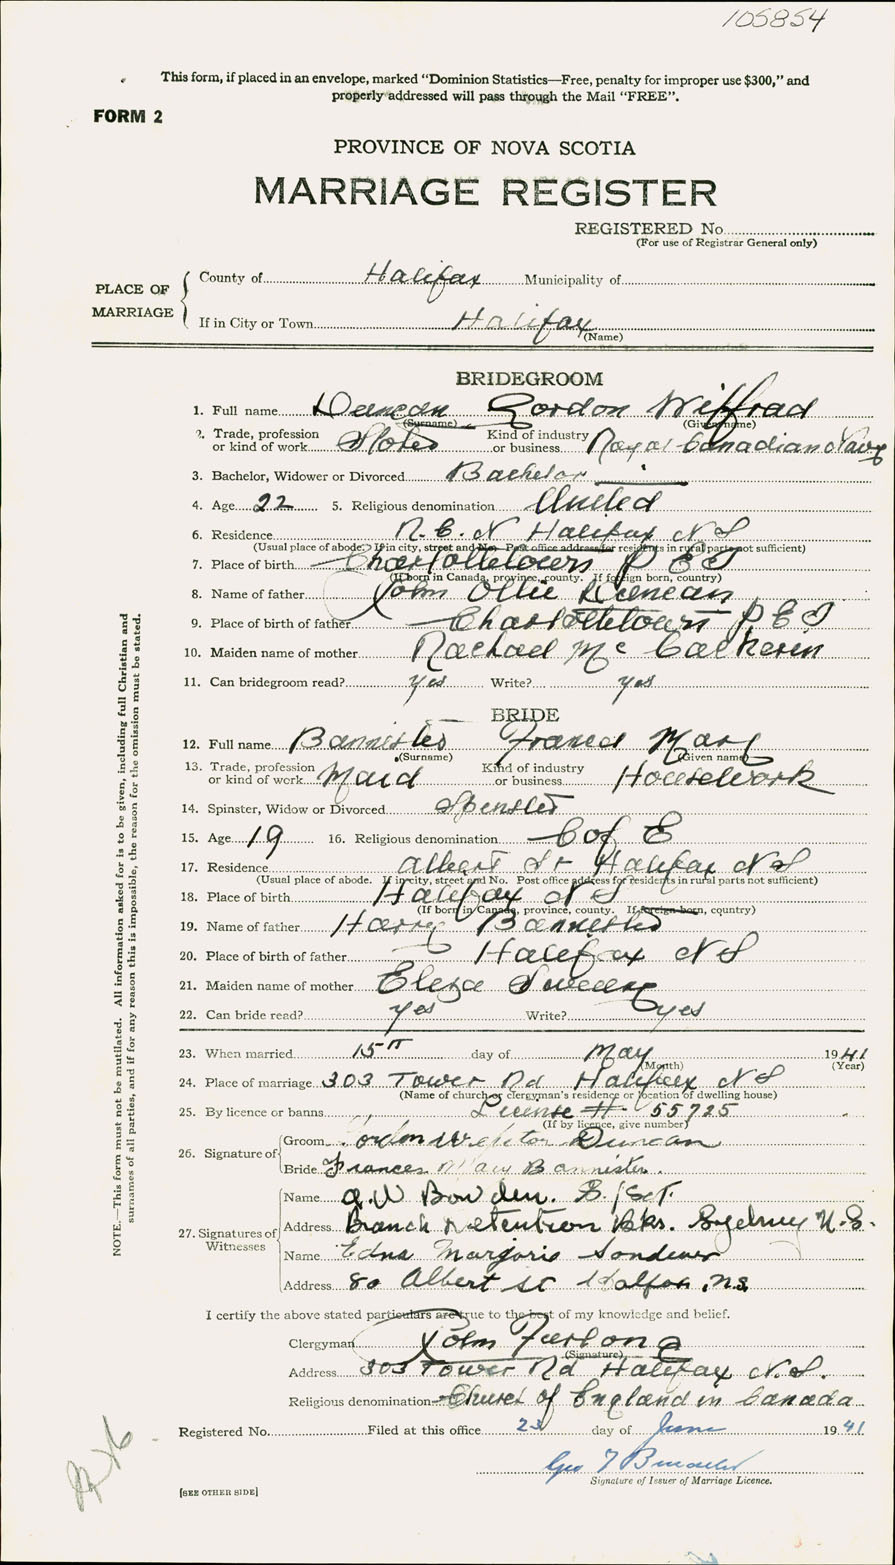 105854
This form, if placed in an envelope, marked "Dominion Statistics—Free, penalty for improper use $300," and
properly addressed will pass through the Mail "FREE".
FORM 2
PROVINCE OF NOVA SCOTIA
MARRIAGE REGISTER
REGISTERED No.
(For use of Registrar General only)
PLACE OF MARRIAGE
County of Halifax Municipality of
If in City or Town Halifax
(Name)
BRIDEGROOM
1. Full name Duncan Gordon Wilfrad
(Surname) (Given name)
2. Trade, profession or kind of work Stoker Kind of industry or business Royal Canadian Navy
3. Bachelor, Widower or Divorced Bachelor
4. Age 22 5. Religious denomination United
6. Residence R.C.N Halifax N S
(Usual place of abode. If in city, street and No. Post office address for residents in rural parts not sufficient)
7. Place of birth Charlottetown P E I
(If born in Canada, province, county. If foreign born, country)
8. Name of father John Ollie Duncan
9. Place of birth of father Charlottetown P E I
10. Maiden name of mother Rachael Mc
11. Can bridegroom read? yes Write? yes
BRIDE
12. Full name Bannister Frances Mary
(Surname) (Given name)
13. Trade, profession or kind of work Maid Kind of industry or business Housework
14. Spinster, Widow or Divorced Spinster
15. Age 19 16. Religious denomination C of E
17. Residence Albert St Halifax N S
(Usual place of abode. If in city, street and No. Post office address for residents in rural parts not sufficient)
18. Place of birth Halifax N S
(If born in Canada, province, county. If foreign born, country)
19. Name of father Harry Bannister
20. Place of birth of father Halifax N S
21. Maiden name of mother Eliza Sweeny
22. Can bride read? yes Write? yes
23. When married 15th day of May 1941
(Month) (Year)
24. Place of marriage 303 Tower Rd Halifax N S
(Name of church or clergyman's residence or location of dwelling house)
25. By licence or banns License # 55725
(If by licence, give number)
26. Signature of
Groom Gordon Duncan
Bride Frances Mary Bannister
27. Signatures of Witnesses
Name A.W Bowden.
Address Branch Bks. Sydney N.S.
Name Edna Marjorie
Address 80 Albert St Halifax, N.S.
I certify the above stated particulars are true to the best of my knowledge and belief.
Clergyman John Furlong
(Signature)
Address 303 Tower Rd Halifax N.S.
Religious denomination Church of England in Canada
Registered No. Filed at this office 23 day of June 1941
Geo
Signature of Issuer of Marriage Licence.
[SEE OTHER SIDE]
NOTE.—This form must not be mutilated. All information asked for is to be given, including full Christian and
surnames of all parties, and if for any reason this is impossible, the reason for the omission must be stated.